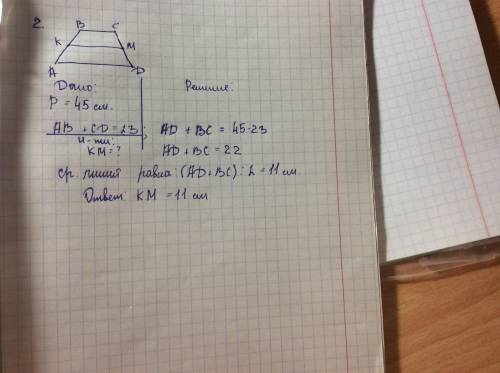 2.
B C
K M
A D
Дано: Решение:
P = 45 см.
AB + CD = 23; AD + BC = 45-23
Н-ти:
KM = ? AD + BC = 22
ср. линия равна: (AD + BC) : 2 = 11 см.
Ответ: KM = 11 см